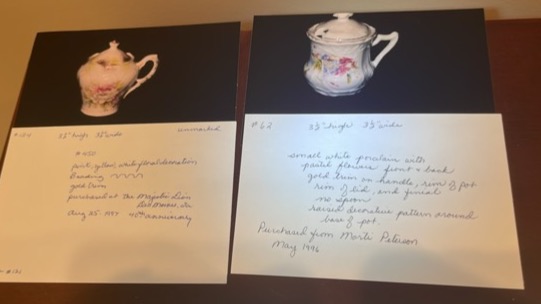 3½" high 3½" wide unmarked
#450
pink, yellow, white floral decoration
Beading
gold trim
purchased at The Majestic Lion
Aug 25 1997 40th anniversary
#62 3½" high 3½" wide
small white porcelain with
pastel flowers front & back
gold trim on handle, rim of pot
rim of lid, and finial
no spoon
raised decorative pattern around
base of pot
Purchased from Morti Peterson
May 1996